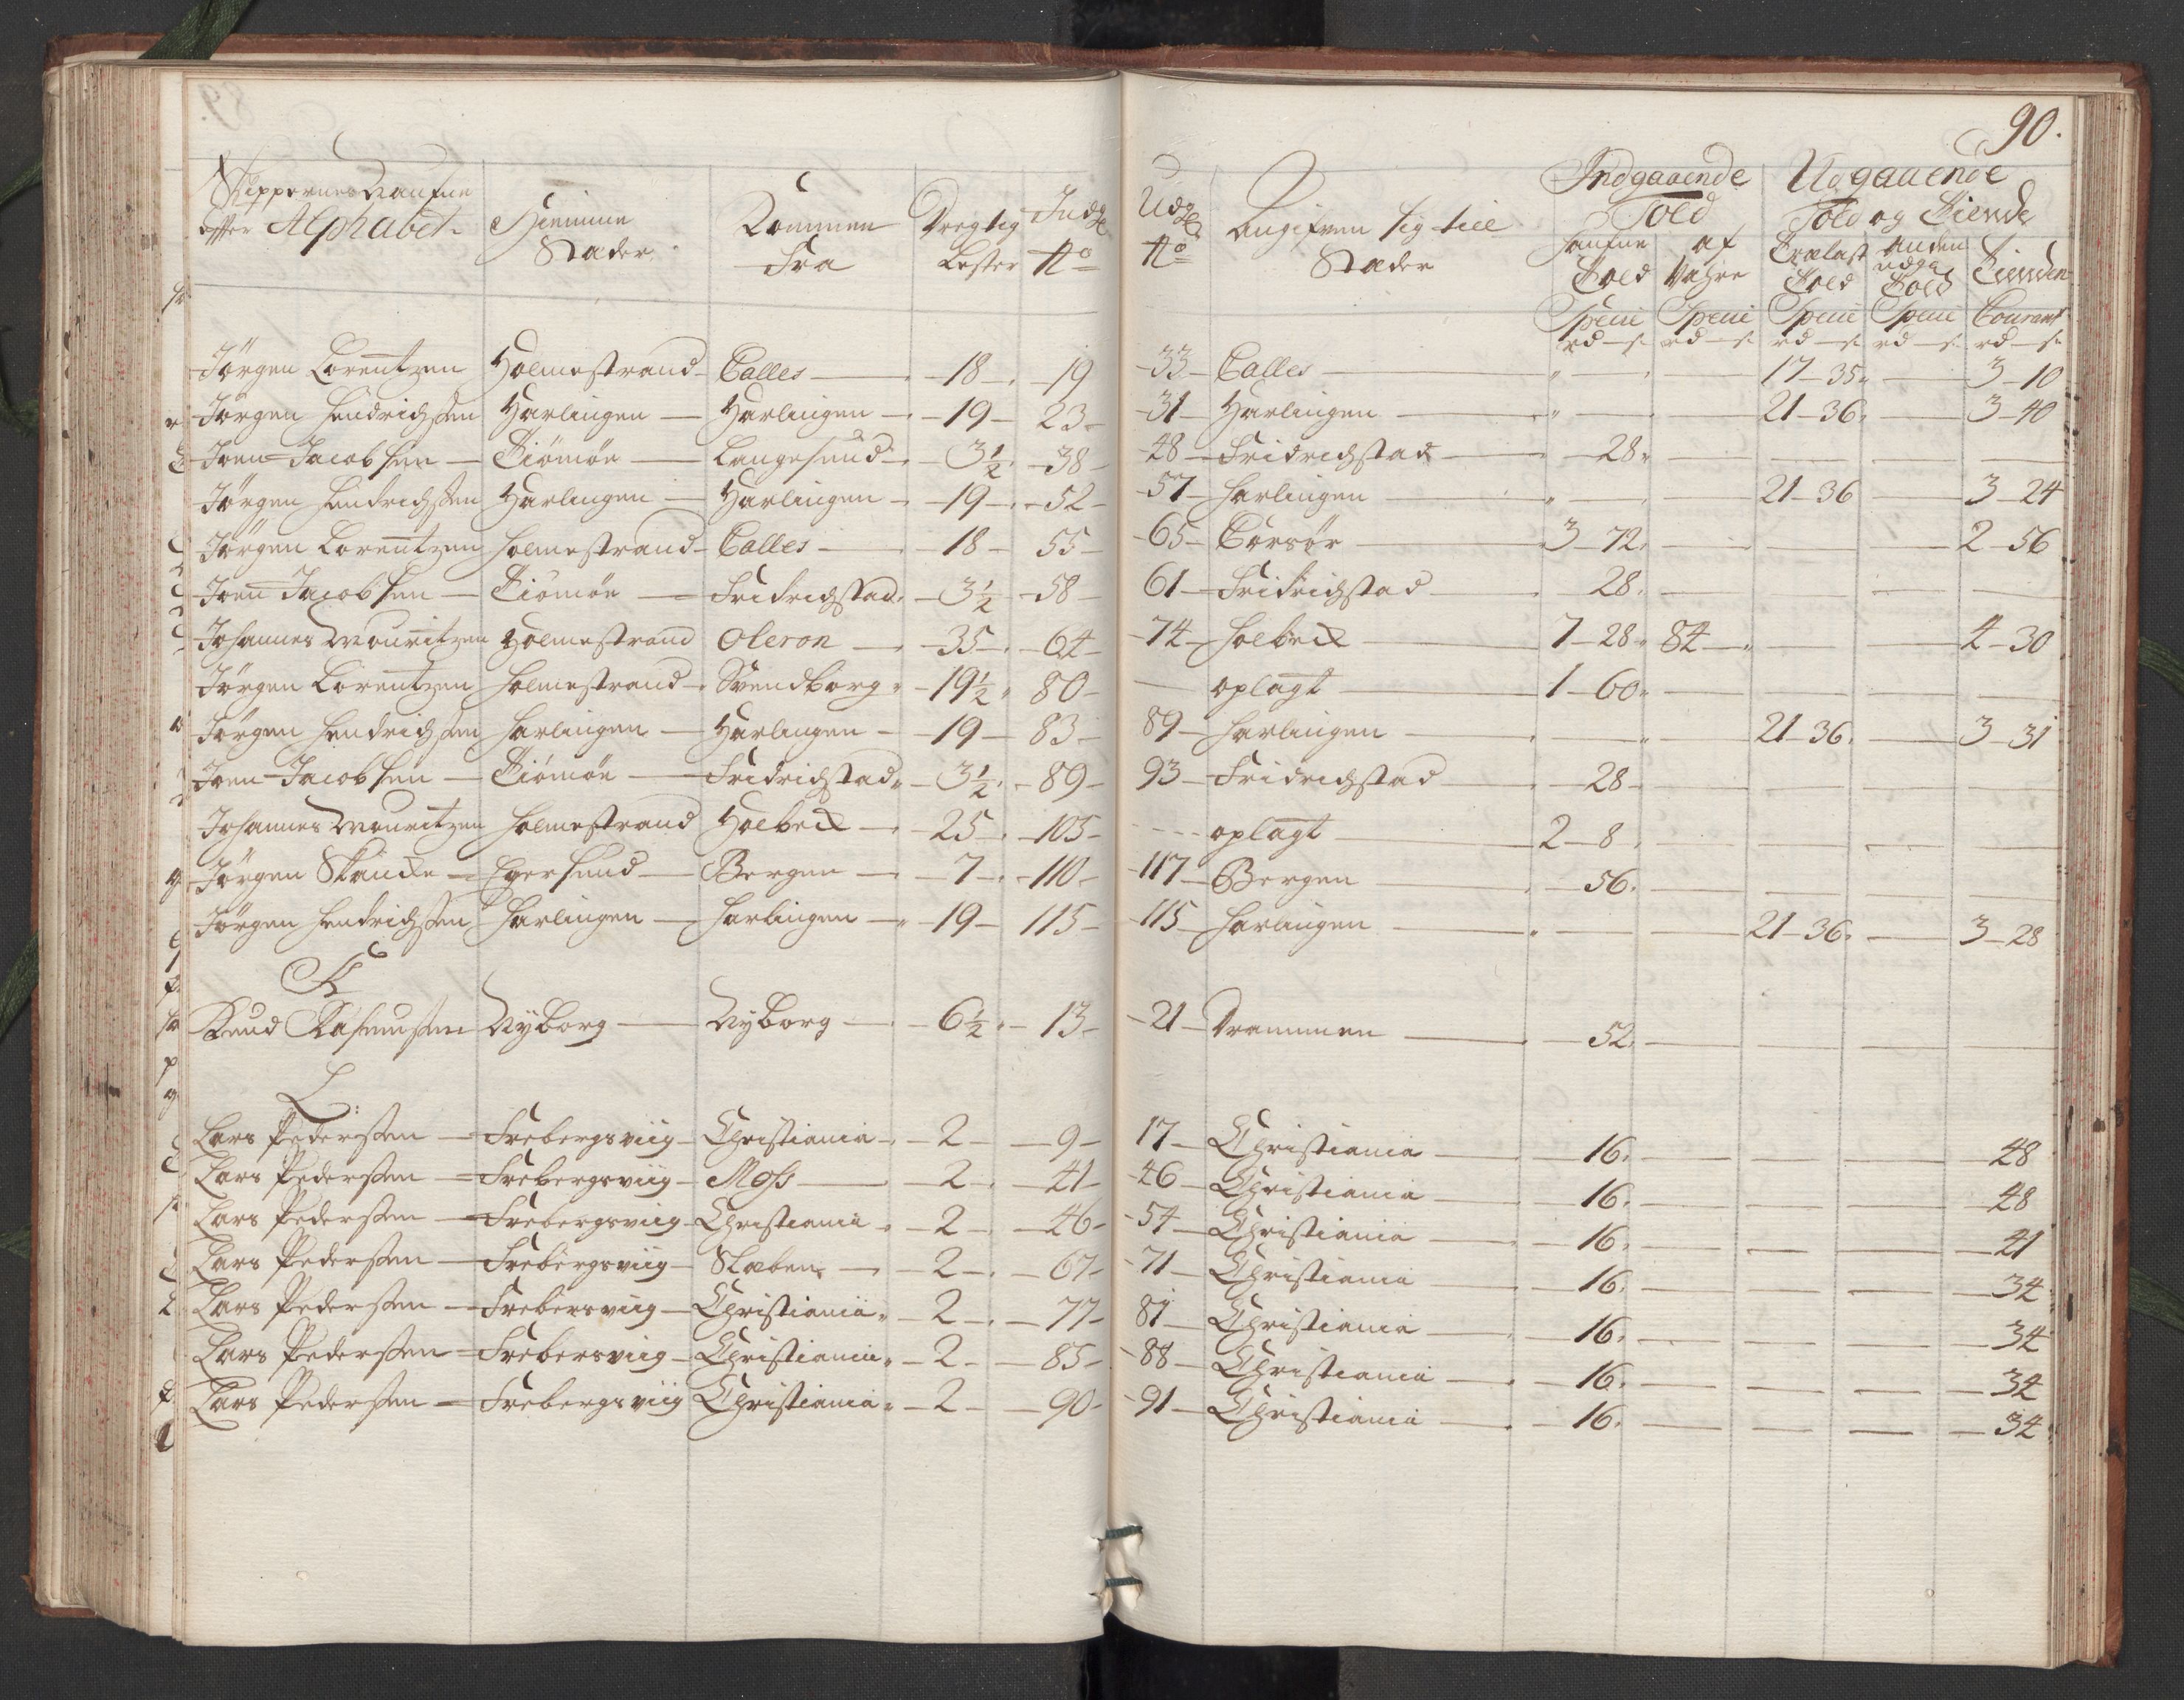 90.
Skippernes Naufne efter Alphabet
Hiemme Stæder
Kommen Fra
Dregtig Lester
Indg. No
Udg. No
Angifven sig till Stæder
Indgaaende Told
Haufne Told
af Vahre
Udgaaende Told og Tiende
Trælast Told
anden udga. Told
Tienden
Specie rd – s.
Specie rd – s.
Specie rd – s.
Specie rd – s.
Courant rd – s.
Jørgen Lorentzen Holmestrand Calles 18 19 33 Calles 17–35 3–10
Jørgen Hendrichsen Harlingen Harlingen 19 23 31 Harlingen 21–36 3–40
Joen Jacobsen Tiømøe Langesund 3½ 38 48 Fridrichstad 28
Jørgen Hendrichsen Harlingen Harlingen 19 52 57 Harlingen 21–36 3–24
Jørgen Lorentzen Holmestrand Calles 18 55 65 Corsør 3–72 2–56
Joen Jacobsen Tiømøe Fridrichstad 3½ 58 61 Fridrichstad 28
Johannes Mouritzen Holmestrand Oleron 35 64 74 Holbeck 7–28 84 4–30
Jørgen Lorentzen Holmestrand Svendborg 19½ 80 oplagt 1–60
Jørgen Hendrichsen Harlingen Harlingen 19 83 89 Harlingen 21–36 3–31
Joen Jacobsen Tiømøe Fridrichstad 3½ 89 93 Fridrichstad 28
Johannes Mouritzen Holmestrand Holbeck 25 105 oplagt 2–8
Jørgen Skancke Egersund Bergen 7 110 117 Bergen 56
Jørgen Hendrichsen Harlingen Harlingen 19 115 115 Harlingen 21–36 3–28
K
Knud Rasmussen Nyborg Nyborg 6½ 13 21 Drammen 52
L:
Lars Pedersen Frebergsviig Christiania 2 9 17 Christiania 16 48
Lars Pedersen Frebergsviig Moss 2 41 46 Christiania 16 48
Lars Pedersen Frebergsviig Christiania 2 46 54 Christiania 16 41
Lars Pedersen Frebergsviig Slæben 2 67 71 Christiania 16 34
Lars Pedersen Frebersviig Christiania 2 77 81 Christiania 16 34
Lars Pedersen Frebersviig Christiania 2 85 88 Christiania 16 34
Lars Pedersen Frebergsviig Christiania 2 90 91 Christiania 16 34